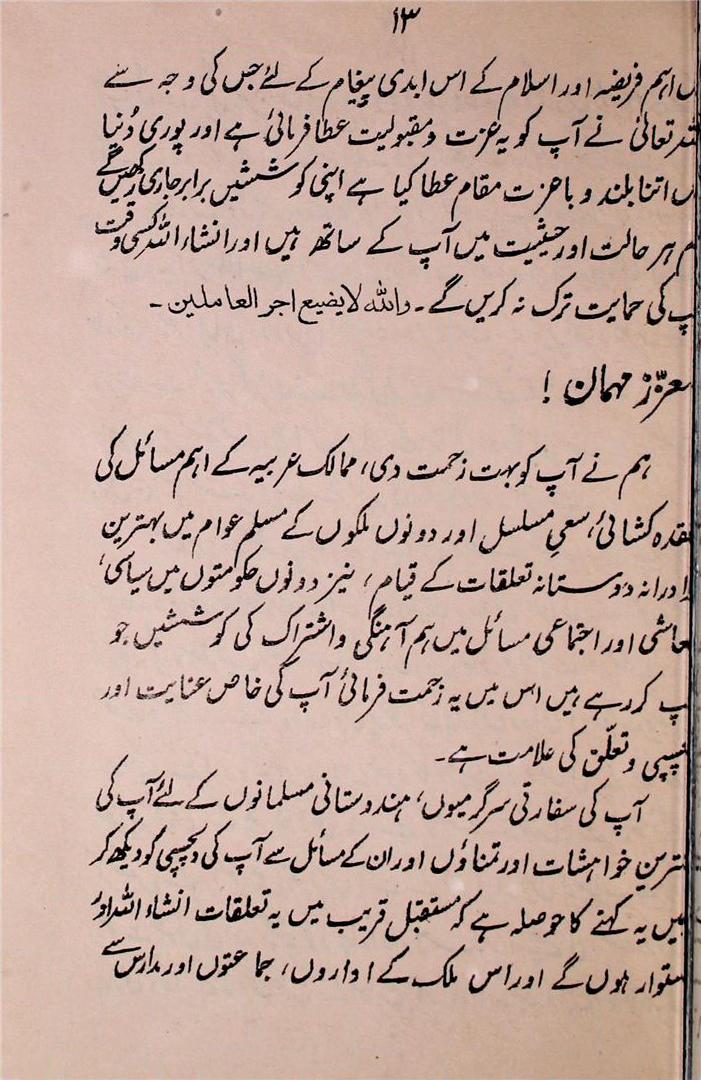 ۱۳
اہم فریضہ اور اسلام کے اس ابدی پیغام کے لئے جس کی وجہ سے
تعالیٰ نے آپ کو یہ عزت و مقبولیت عطا فرمائی ہے اور پوری دُنیا
اتنا بلند و باعزت مقام عطا کیا ہے اپنی کوششیں برابر جاری رکھیں گے
ہر حالت اور حیثیت میں آپ کے ساتھ ہیں اور انشاء اللہ کسی وقت
کی حمایت ترک نہ کریں گے۔ واللہ لا یضیع اجر العاملین۔
معزّز مہمان !
ہم نے آپ کو بہت زحمت دی، ممالک عربیہ کے اہم مسائل کی
عقدہ کشائی، سعیِ مسلسل اور دونوں ملکوں کے مسلم عوام میں بہترین
دوستانہ تعلقات کے قیام، نیز دونوں حکومتوں میں سیاسی،
معاشی اور اجتماعی مسائل میں ہم آہنگی و اشتراک کی کوششیں جو
کر رہے ہیں اس میں یہ زحمت فرمائی آپ کی خاص عنایت اور
و تعلّق کی علامت ہے۔
آپ کی سفارتی سرگرمیوں، ہندوستانی مسلمانوں کے لئے آپ کی
بہترین خواہشات اور تمناؤں اور ان کے مسائل سے آپ کی دلچسپی کو دیکھ کر
ہمیں یہ کہنے کا حوصلہ ہے کہ مستقبل قریب میں یہ تعلقات انشاء اللہ اور
استوار ہوں گے اور اس ملک کے اداروں، جماعتوں اور مدارس سے